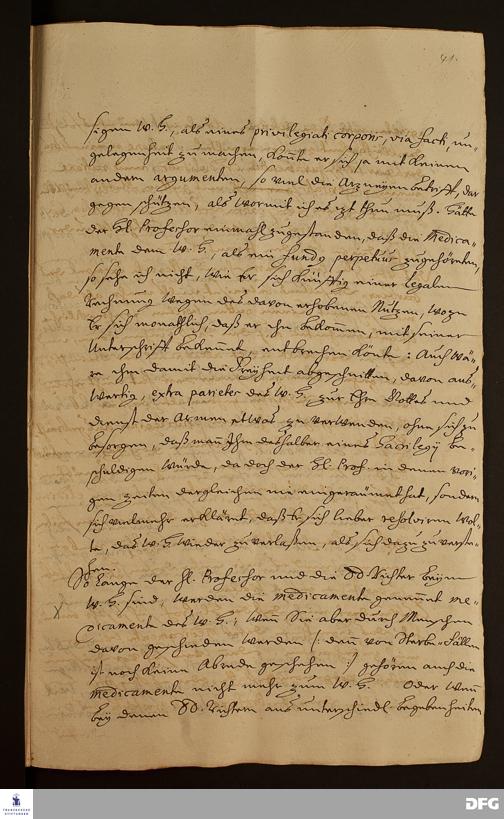 41.
sigem W. H., als eines privilegiati corporis, via facti, un-
gelegenheit zu machen, könte er sich ja mit keinem
andern argumenten, so viel die Arzneyen betrifft, dar
gegen schützen, als womit ich es izt thun muß. Hätte
der Hl. Professor einmahl zugestanden, daß die Medica-
menta dem W. H., als ein fundus perpetuus zugehöreten,
so sehe ich nicht, wie Er sich künfftig einer legalen
Rechnung wegen des davon erhobenen Nutzen, wozu
Er sich monathlich, daß er ihn bekommen, mit seiner
Unterschrifft bekennet, entbrechen könte: Auch wä-
re ihm damit die Freyheit abgeschnitten, davon aus-
wertig, extra parietes des W. H., zur Ehre Gottes und
dienst der Armen etwas zu verwenden, ohne sich zu
besorgen, daß man Ihn deshalber eines Sacrilegij be-
schuldigen würde, da doch der Hl. Prof. in denen vori-
gen zeiten dergleichen nie eingeräumet hat, sondern
sich vielmehr erkläret, daß Er sich lieber resolviren wol-
te, das W. H. wieder zu verlaßen, als sich dazu zu verste-
hen.
So lange der Hl. Professor und die DD. Richter beym
W. H. sind, werden die medicamenta genennet me-
dicamenta des W. H.; wenn Sie aber durch Menschen
davon geschieden werden (: denn von Sterbe-Fällen
ist noch keine Abrede geschehen :) gehören auch die
medicamenta nicht mehr zum W. H. Oder wenn
bey denen DD. Richtern aus unterschiedl. begebenheiten
FRANCKESCHE
STIFTUNGEN
DFG